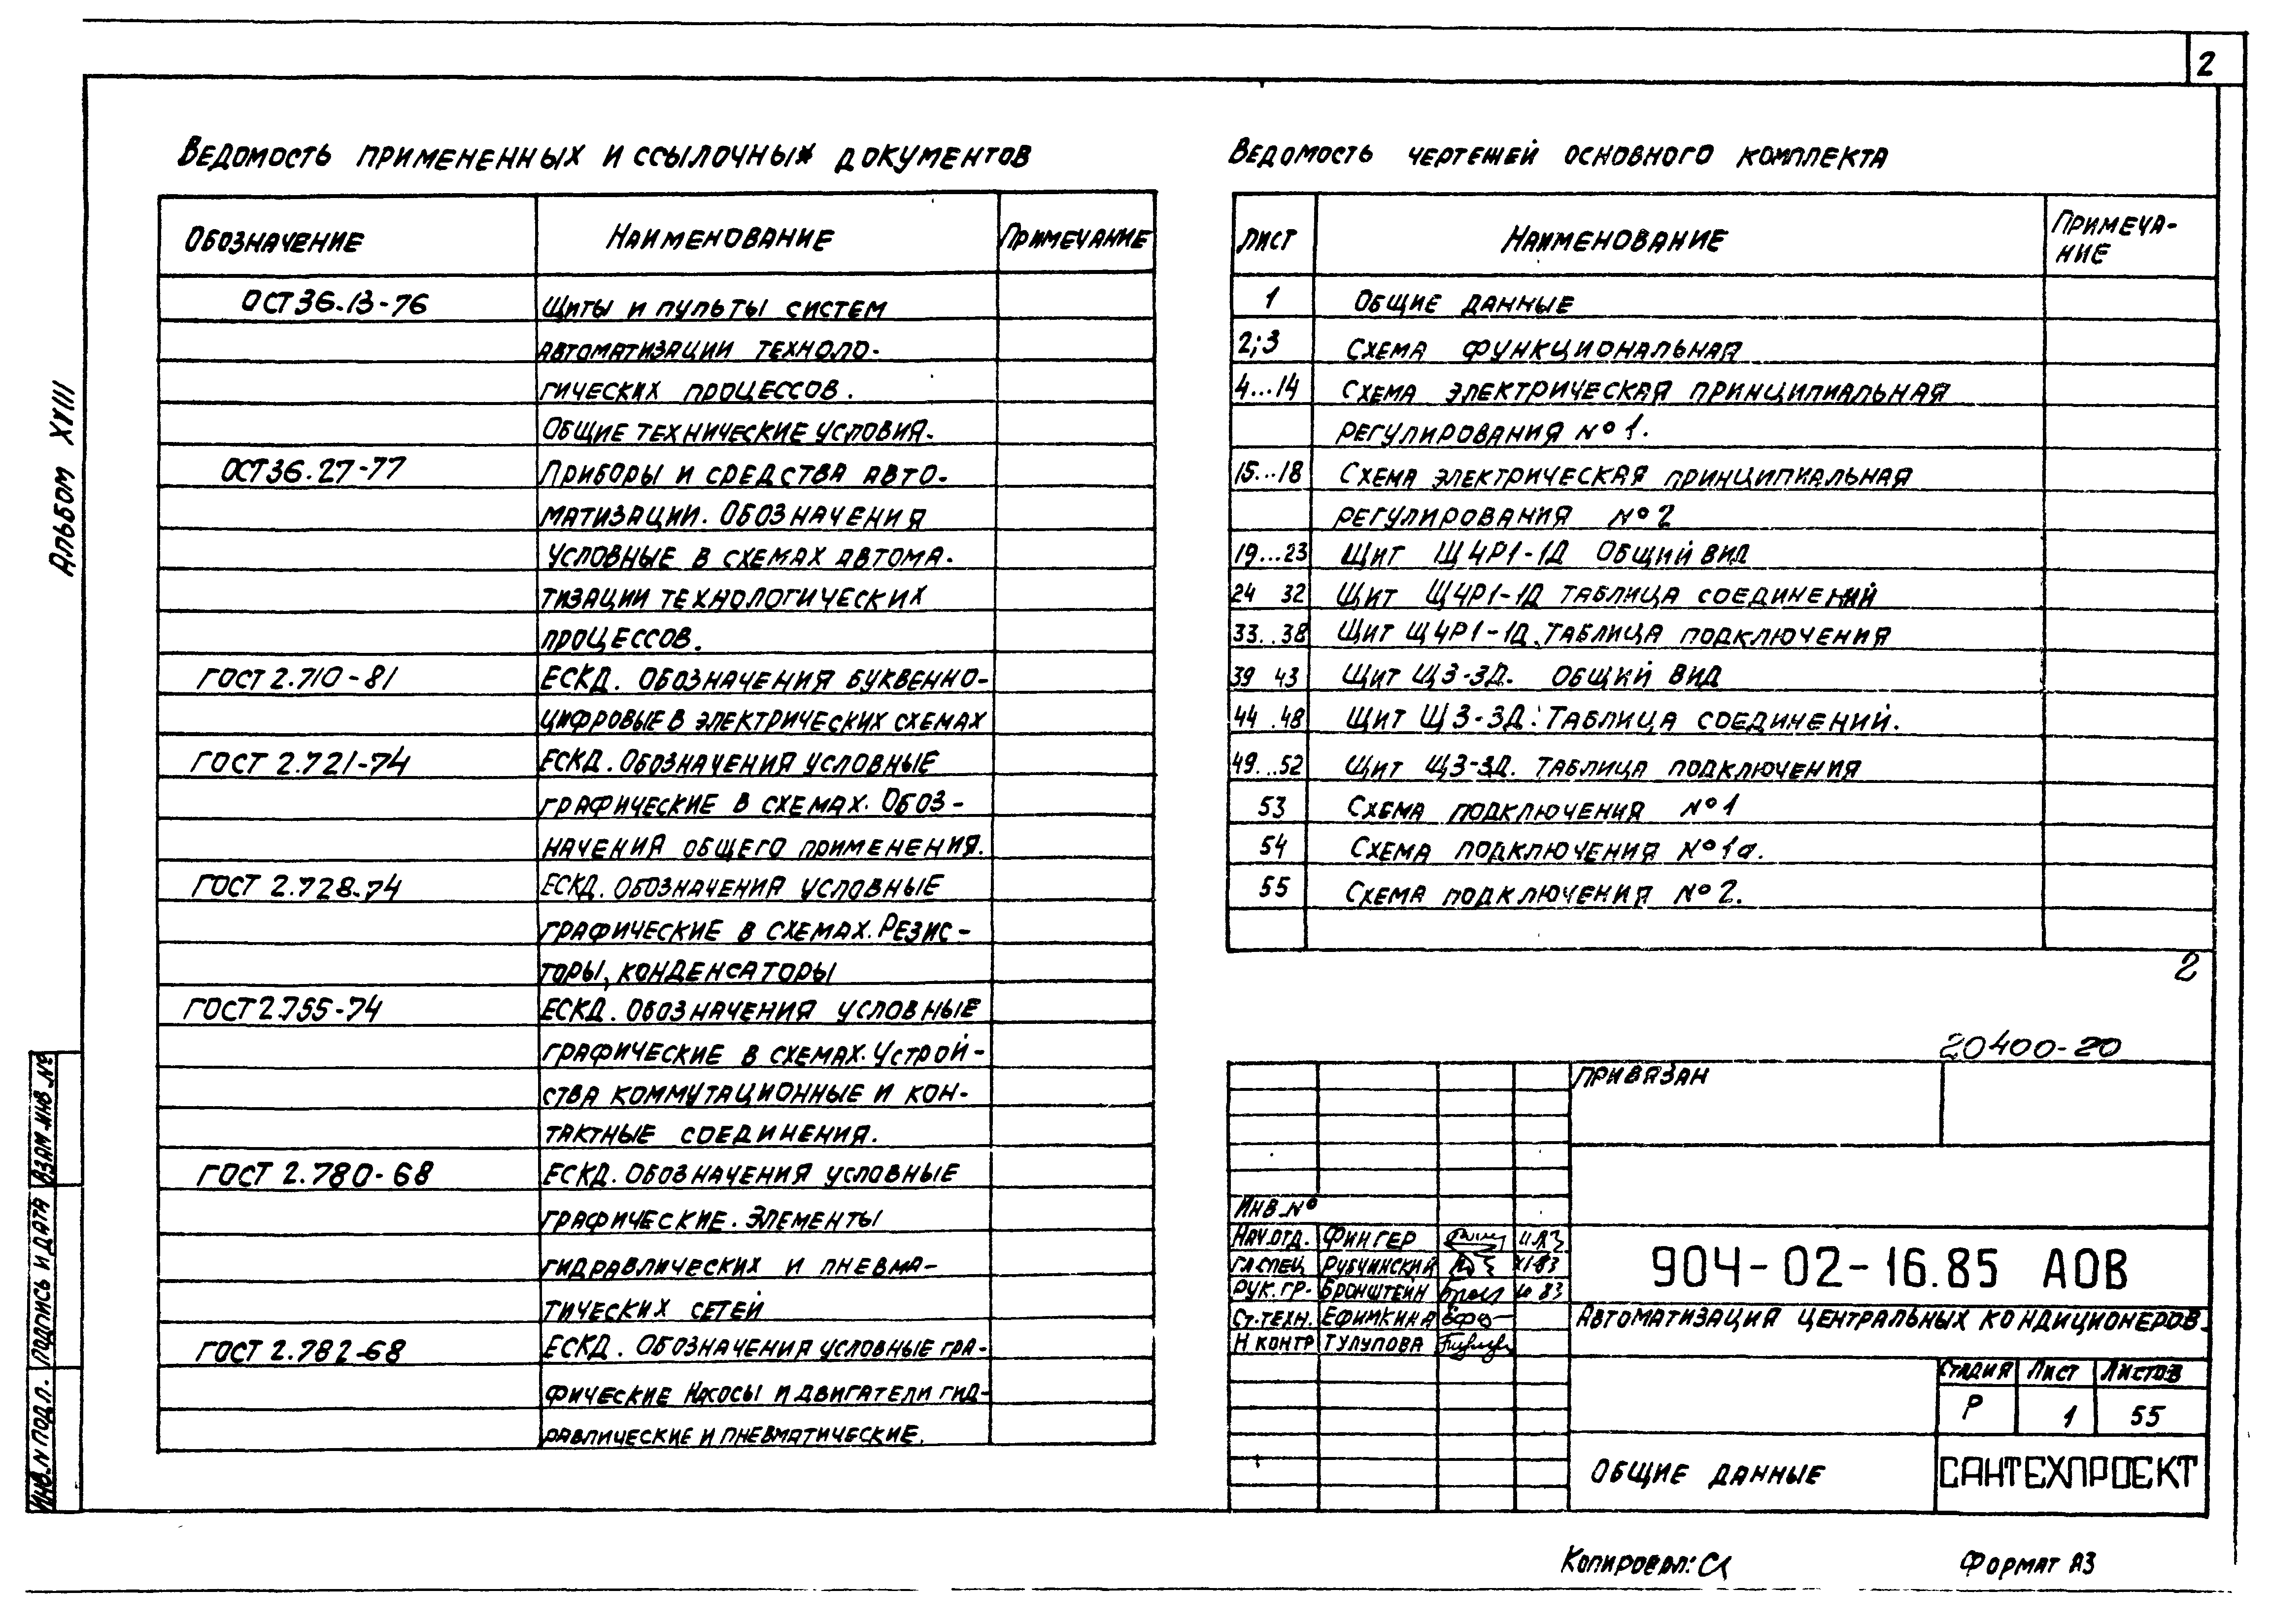 2
Альбом XVIII
Ведомость примененных и ссылочных документов
Обозначение Наименование Примечание
ОСТ 36.13-76 Щиты и пульты систем
автоматизации техноло-
гических процессов.
Общие технические условия.
ОСТ 36.27-77 Приборы и средства авто-
матизации. Обозначения
условные в схемах автома-
тизации технологических
процессов.
ГОСТ 2.710-81 ЕСКД. Обозначения буквенно-
цифровые в электрических схемах
ГОСТ 2.721-74 ЕСКД. Обозначения условные
графические в схемах. Обоз-
начения общего применения.
ГОСТ 2.728-74 ЕСКД. Обозначения условные
графические в схемах. Резис-
торы, конденсаторы
ГОСТ 2.755-74 ЕСКД. Обозначения условные
графические в схемах. Устрой-
ства коммутационные и кон-
тактные соединения.
ГОСТ 2.780-68 ЕСКД. Обозначения условные
графические. Элементы
гидравлических и пневма-
тических сетей
ГОСТ 2.782-68 ЕСКД. Обозначения условные гра-
фические Насосы и двигатели гид-
равлические и пневматические.
Ведомость чертежей основного комплекта
Лист Наименование Примеча-
ние
1 Общие данные
2;3 Схема функциональная
4...14 Схема электрическая принципиальная
регулирования №1.
15...18 Схема электрическая принципиальная
регулирования №2
19...23 Щит Щ4Р1-1Д Общий вид
24 32 Щит Щ4Р1-1Д таблица соединений
33..38 Щит Щ4Р1-1Д. Таблица подключения
39 43 Щит Щ3-3Д. Общий вид
44 .48 Щит Щ3-3Д. Таблица соединений.
49...52 Щит Щ3-3Д. Таблица подключения
53 Схема подключения №1
54 Схема подключения №1а.
55 Схема подключения №2.
2
20400-20
Привязан
Инв.№
Нач.отд. Фингер 11.83
Гл спец Рубчинский XI-83
Рук.гр. Бронштейн 83
Ст.техн. Ефимкина
Н контр Тулупова
904-02-16.85 АОВ
Автоматизация центральных кондиционеров.
Стадия Лист Листов
Р 1 55
Общие данные
САНТЕХПРОЕКТ
Инв.N подл. Подпись и дата Взам.инв.№
Копировал:
Формат А3